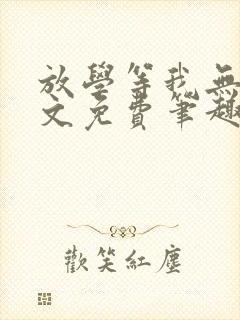 放學等我無
文免費筆趣
歡笑紅塵